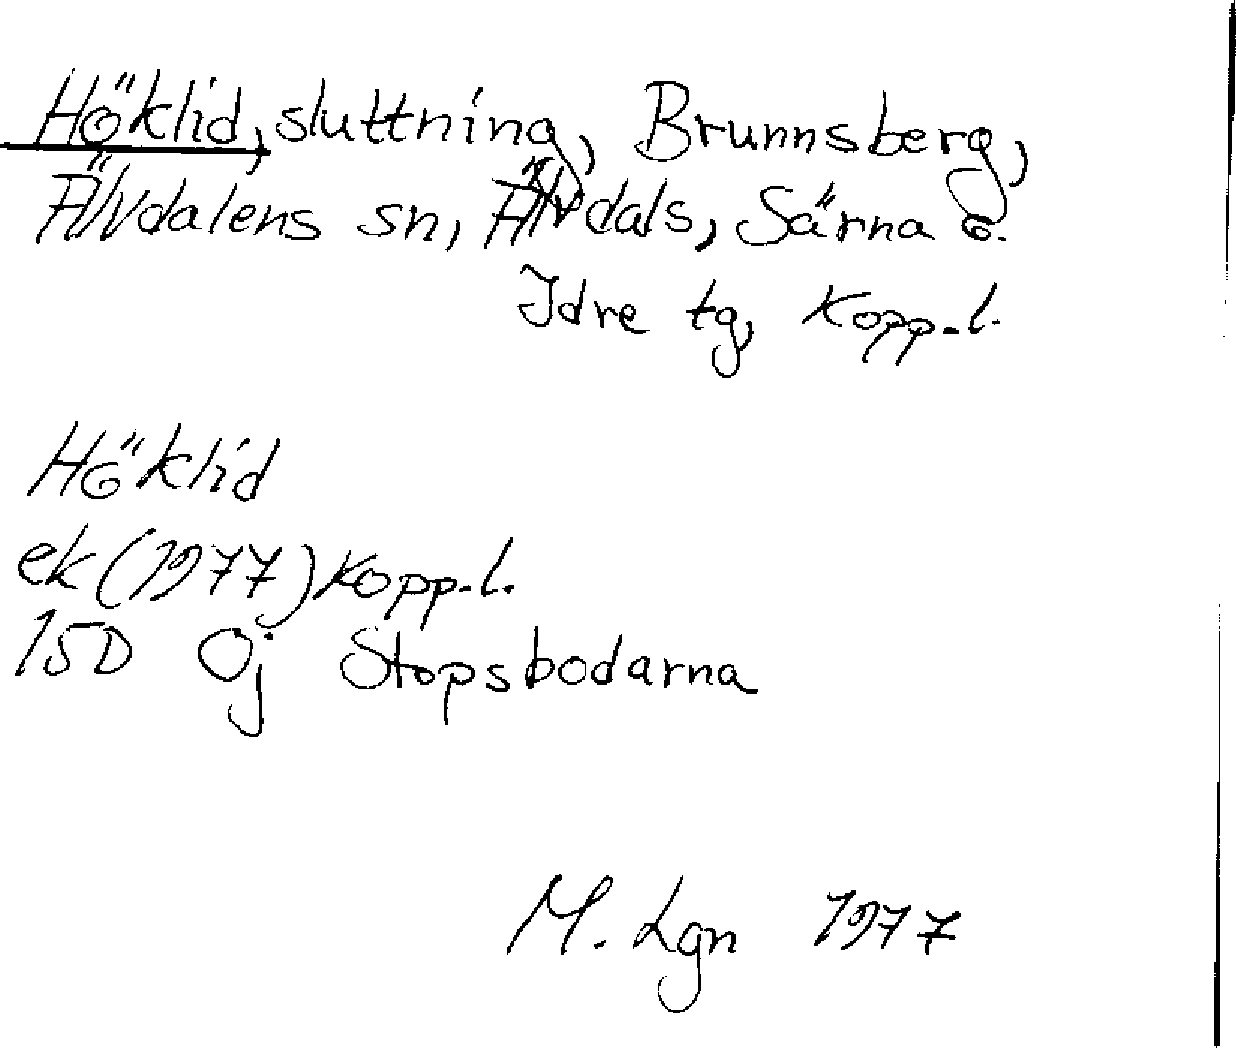 Höklid, sluttning, Brunnsberg,
Älvdalens sn, Älvdals, Särna o.
Idre tg, Kopp.l.
Höklid
ek (1977) Kopp.l.
15D 0j Stopsbodarna
M. Lgn 1977